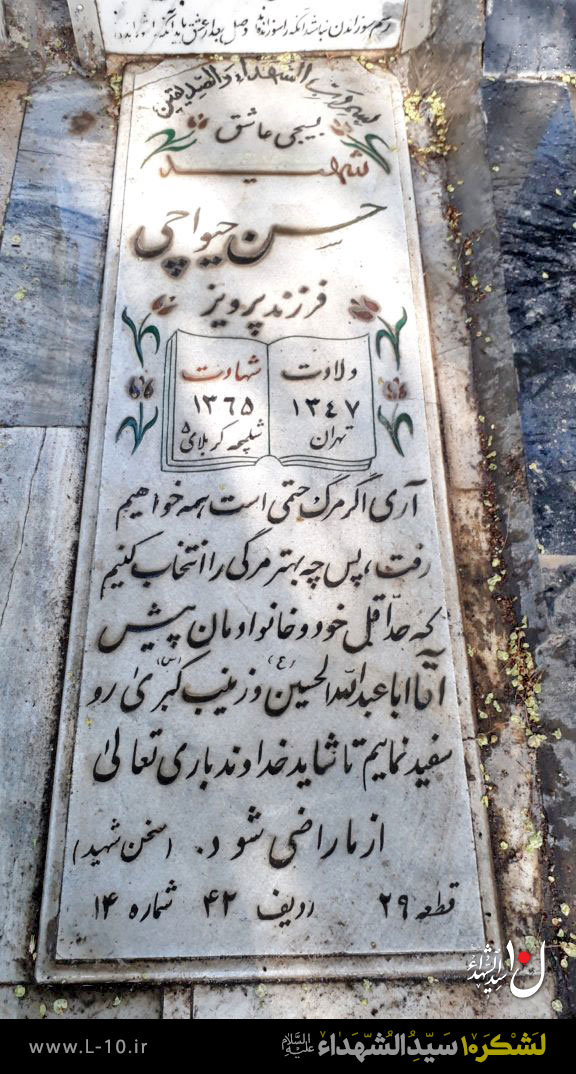 رسم سوزاندن نباشد آنکه را سوزانده‌اند وصل بعد از عشق باید آنکه
بسم رب الشهداء والصدیقین
بسیجی عاشق
شهید
حسن حیواچی
فرزند پرویز
ولادت
۱۳۴۷
تهران
شهادت
۱۳۶۵
شلمچه کربلای ۵
آری اگر مرگ حتمی است همه خواهیم
رفت، پس چه بهتر مرگی را انتخاب کنیم
که حداقل خود و خانواده‌مان پیش
آقا اباعبدالله الحسین (ع) و زینب کبری (س) رو
سفید نماییم تا شاید خداوند باری تعالیٰ
از ما راضی شود. (سخن شهید)
قطعه ۲۹ ردیف ۴۲ شماره ۱۴
ل۱۰ سیدالشهداء
www.L-10.ir
لَشْکَر۱۰ سَیِّدُالشُّهَداء عَلَیهِ السَّلام